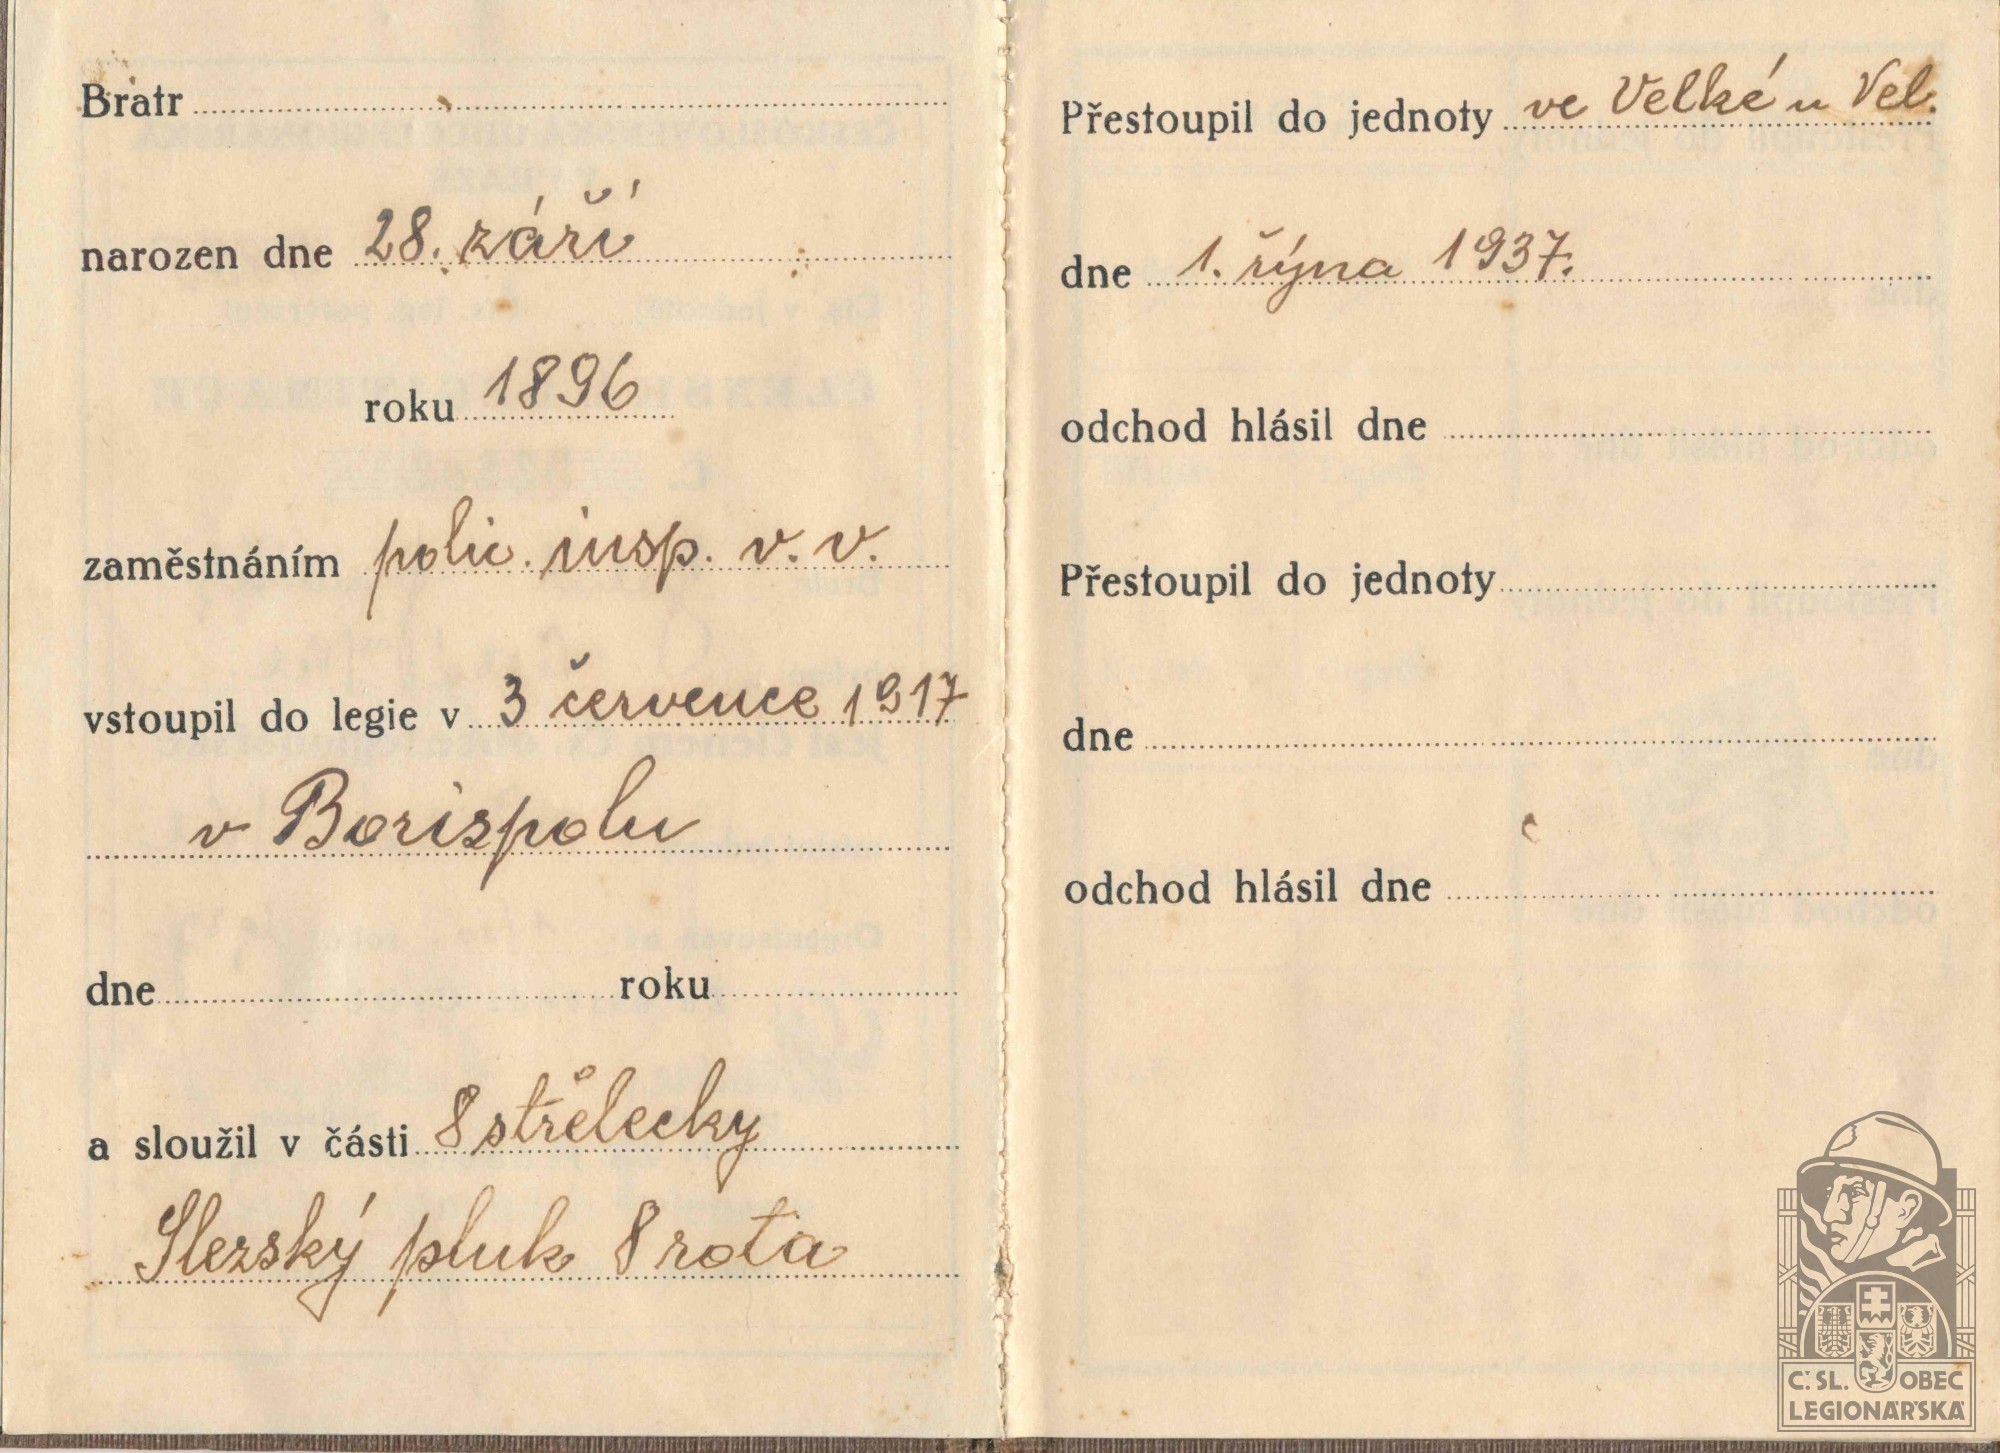 Bratr
narozen dne 28. září
roku 1896
zaměstnáním polic. insp. v. v.
vstoupil do legie v 3 července 1917
v Borispolu
dne roku
a sloužil v části 8 střelecky
Slezský pluk 8 rota
Přestoupil do jednoty ve Velké u Vel.
dne 1. října 1937.
odchod hlásil dne
Přestoupil do jednoty
dne
odchod hlásil dne
Č. SL. OBEC
LEGIONÁŘSKÁ